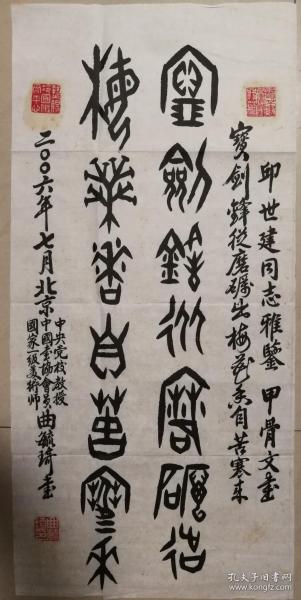 邱世建同志雅鑒 甲骨文書
寶劍鋒從磨礪出梅花香自苦寒來
寶劍鋒從磨礪出
梅花香自苦寒來
二〇〇六年七月北京
中央党校教授
中國書協會員
國家一級美術师
曲毓琦書
孔夫子旧书网